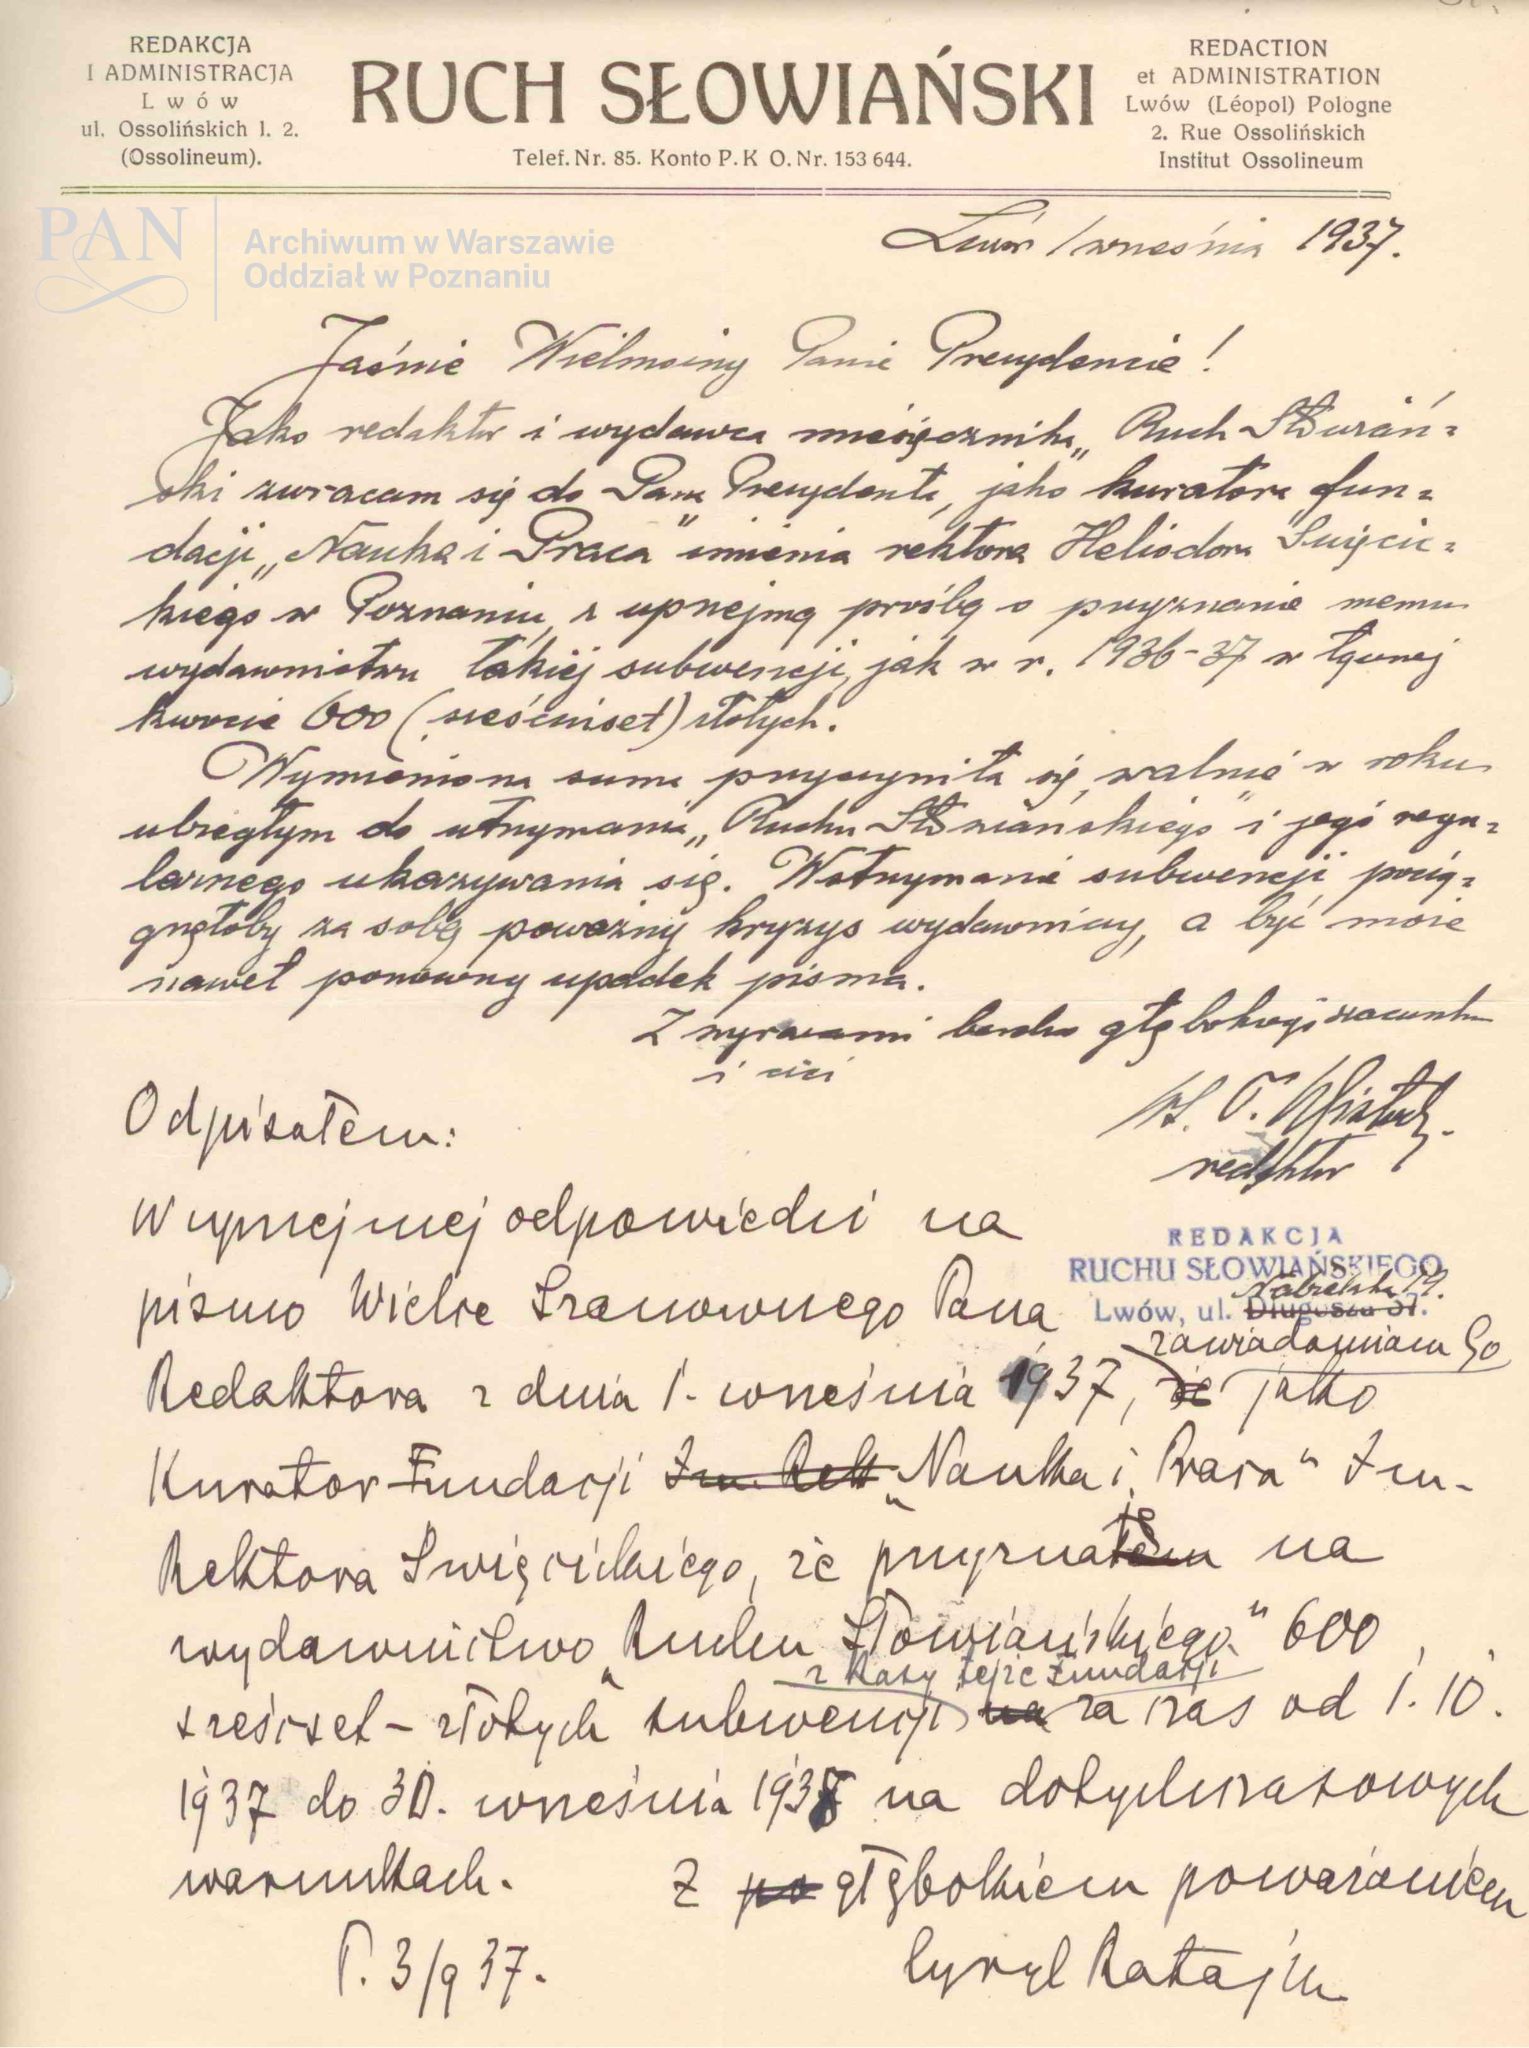 REDAKCJA
I ADMINISTRACJA
Lwów
ul. Ossolińskich l. 2.
(Ossolineum).
RUCH SŁOWIAŃSKI
Telef. Nr. 85. Konto P. K O. Nr. 153 644.
REDACTION
et ADMINISTRATION
Lwów (Léopol) Pologne
2. Rue Ossolińskich
Institut Ossolineum
PAN
Archiwum w Warszawie
Oddział w Poznaniu
Lwów 1 września 1937.
Jaśnie Wielmożny Panie Prezydencie!
Jako redaktor i wydawca miesięcznika „Ruch Słowiań=
ski zwracam się do Pana Prezydenta, jako kuratora fun=
dacji „Nauka i Praca" imienia rektora Heliodora Święcic=
kiego w Poznaniu, z uprzejmą prośbą o przyznanie memu
wydawnictwu takiej subwencji, jak w r. 1936-37 w łącznej
kwocie 600 (sześciuset) złotych.
Wymieniona suma przyczyniła się walnie w roku
ubiegłym do utrzymania „Ruchu Słowiańskiego" i jego regu=
larnego ukazywania się. Wstrzymanie subwencji pocią=
gnęłoby za sobą poważny kryzys wydawniczy, a być może
nawet ponowny upadek pisma.
Z wyrazami bardzo głębokiego szacunku
i czci
redaktor
REDAKCJA
RUCHU SŁOWIAŃSKIEGO
Lwów, ul. Długosza 37.
Odpisałem:
W uprzejmej odpowiedzi na
pismo Wielce Szanownego Pana
zawiadamiam Go
Redaktora z dnia 1. września 1937, że jako
Kurator Fundacji Im. Rekt „Nauka i Praca" Im.
Rektora Święcickiego, że przyznałem na
wydawnictwo „Ruchu Słowiańskiego" 600
z Kasy tejże Fundacji
sześćset – złotych subwencji na za czas od 1. 10.
1937 do 30. września 1938 na dotychczasowych
warunkach. Z po głębokiem poważaniem
P. 3/9 37. Cyryl Ratajski